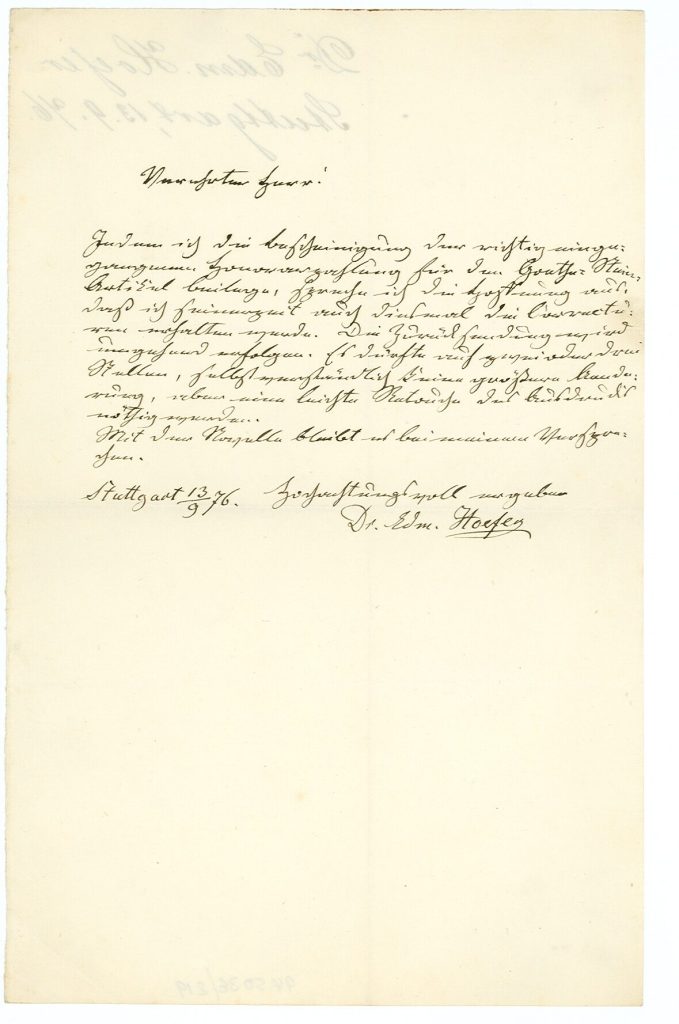 Verehrter Herr!
Indem ich die Bescheinigung der richtig einge-
gangenen Honorarzahlung für den Goethe-Stein-
Artikel beilege, spreche ich die Hoffnung aus,
daß ich seinerzeit auch diesmal die Correctu-
ren erhalten werde. Die Zurücksendung wird
umgehend erfolgen. Es dürfte auf zwei oder drei
Stellen, selbstverständlich keine größere Aende-
rung, aber eine leichte Retouche des Ausdrucks
nöthig werden.
Mit der Novelle bleibt es bei meinem Verspre-
chen.
Stuttgart 13/9 76. Hochachtungsvoll ergeben
Dr. Edm. Hoefer
Dr. Edm. Hoefer
Stuttgart, 13.9.76